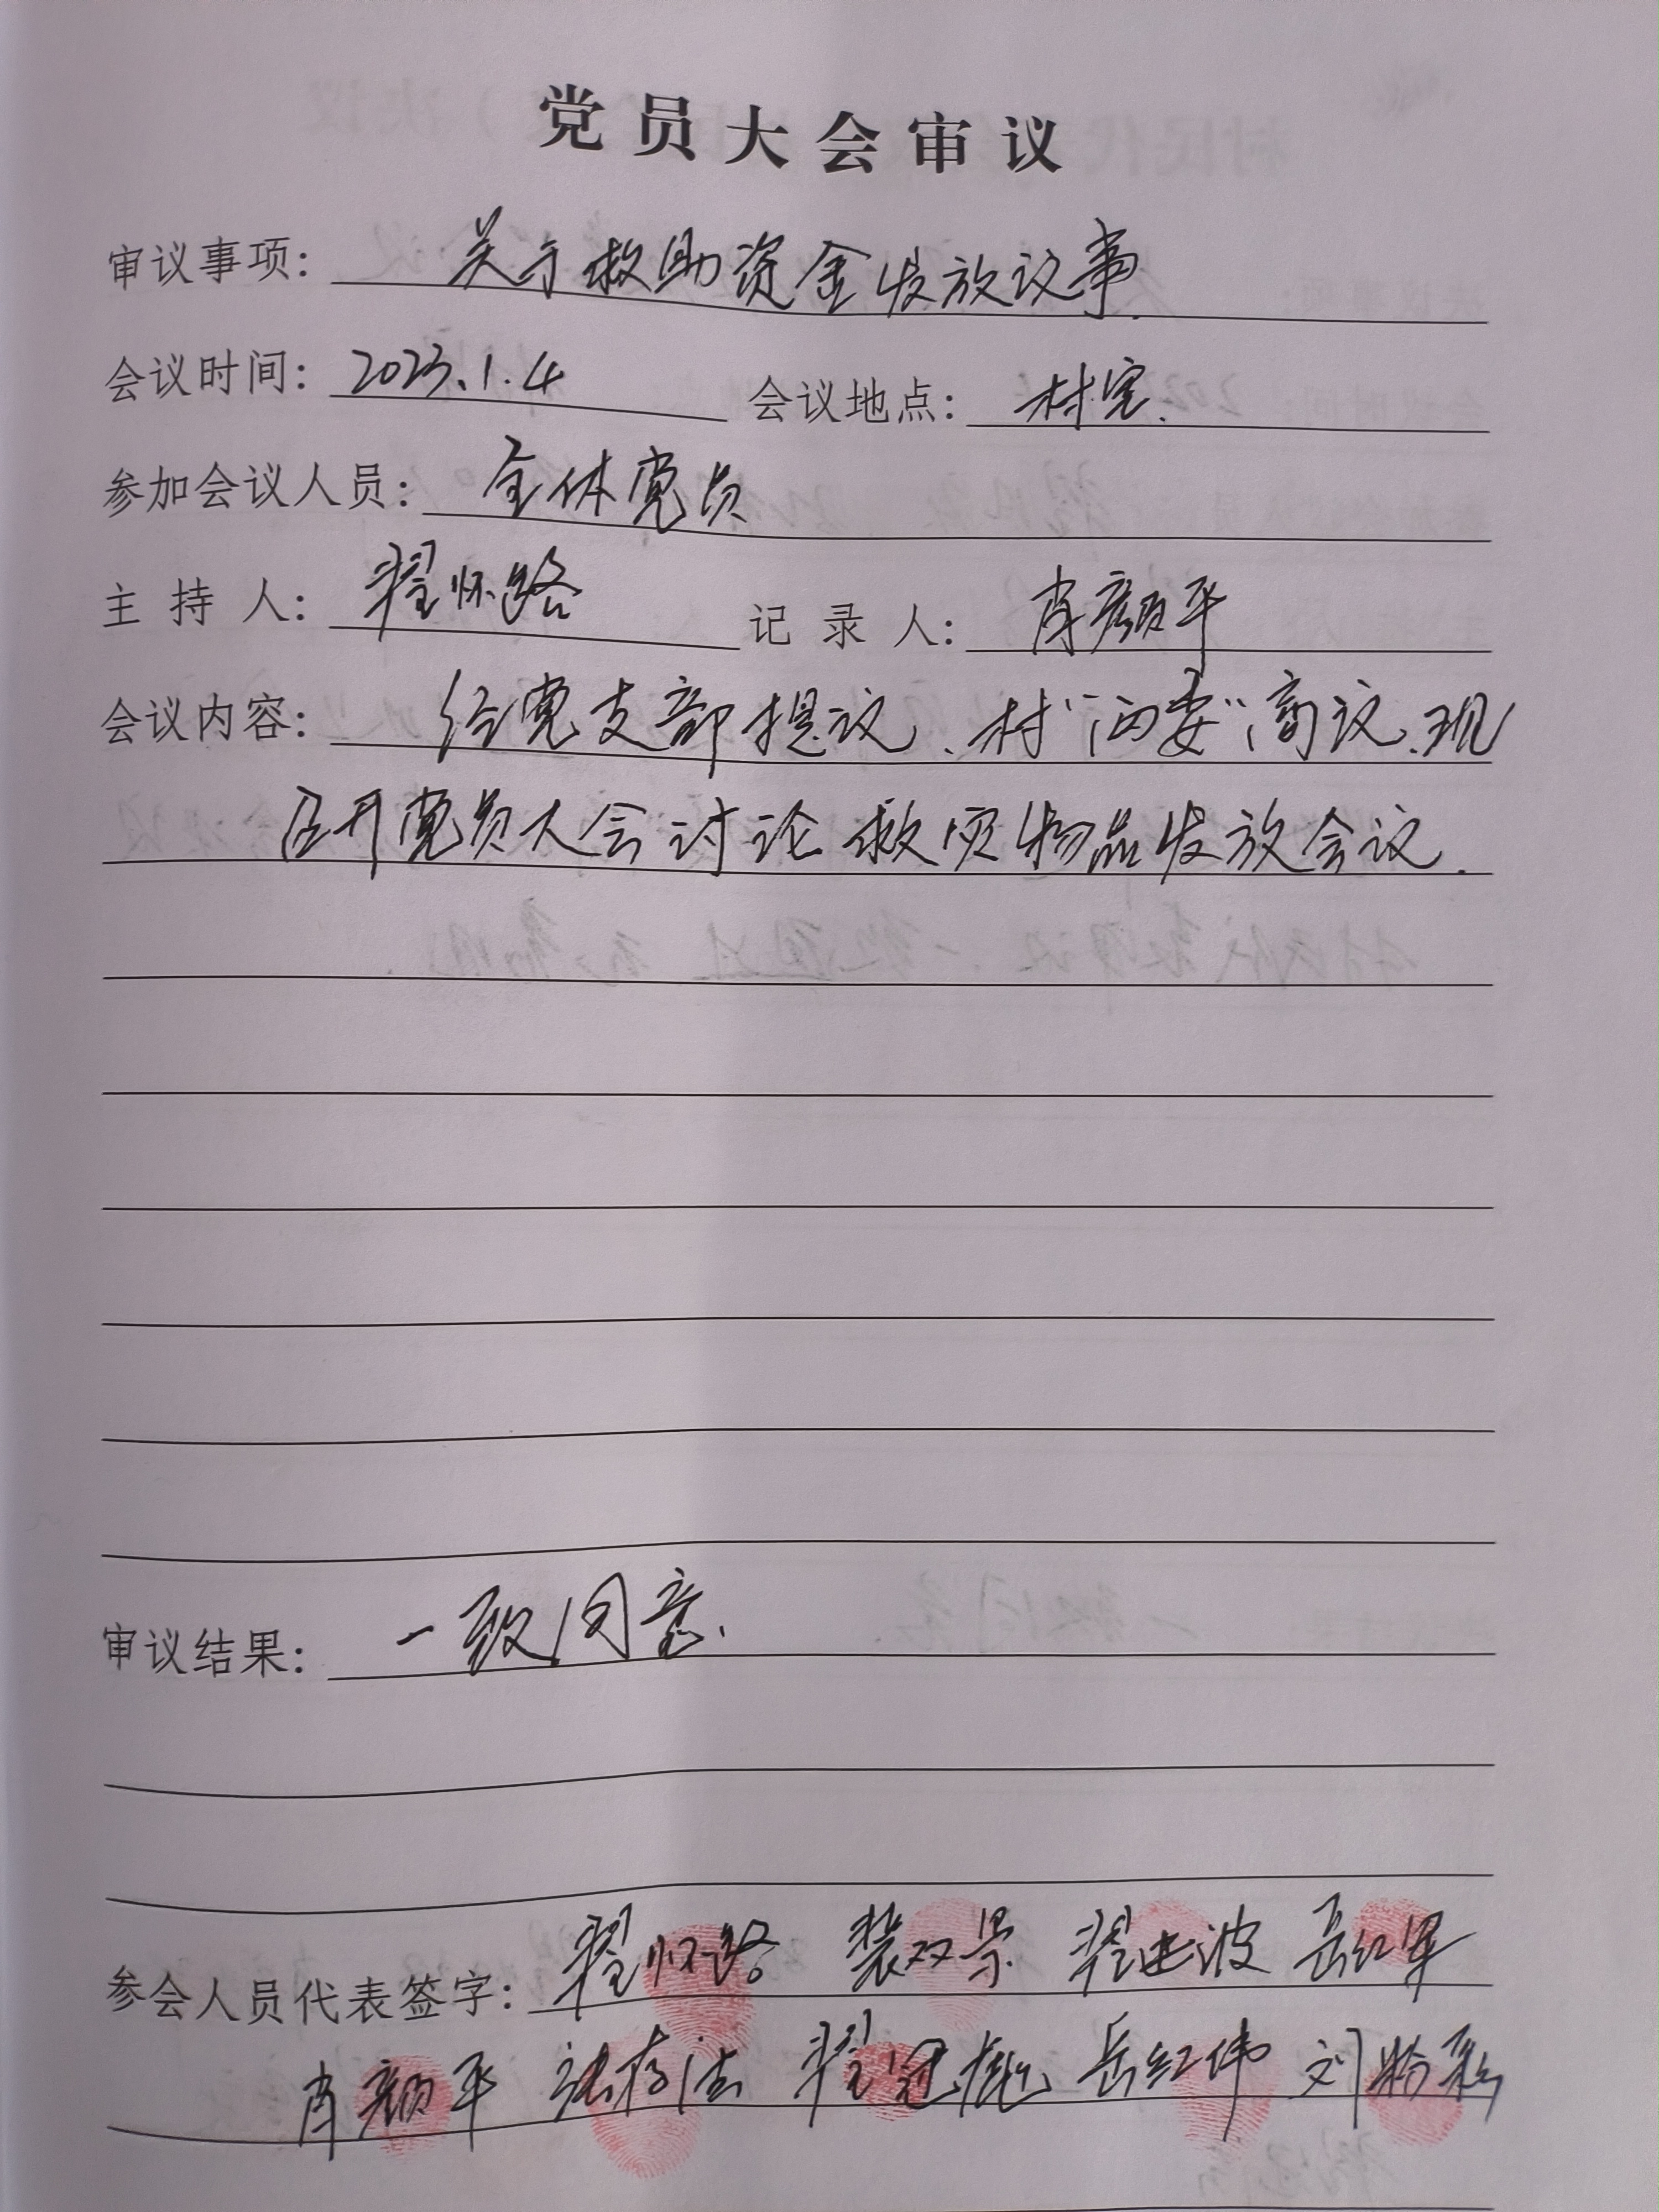 党员大会审议
审议事项：关于救助资金发放议事.
会议时间：2023.1.4 会议地点：村室.
参加会议人员：全体党员
主持人：翟怀路 记录人：肖颜平
会议内容：经党支部提议、村“两委”商议、现
召开党员大会讨论救灾物品发放会议.
审议结果：一致同意.
参会人员代表签字：翟怀路 裴双景 翟进波 岳红军
肖颜平 翟冠彪 岳红伟